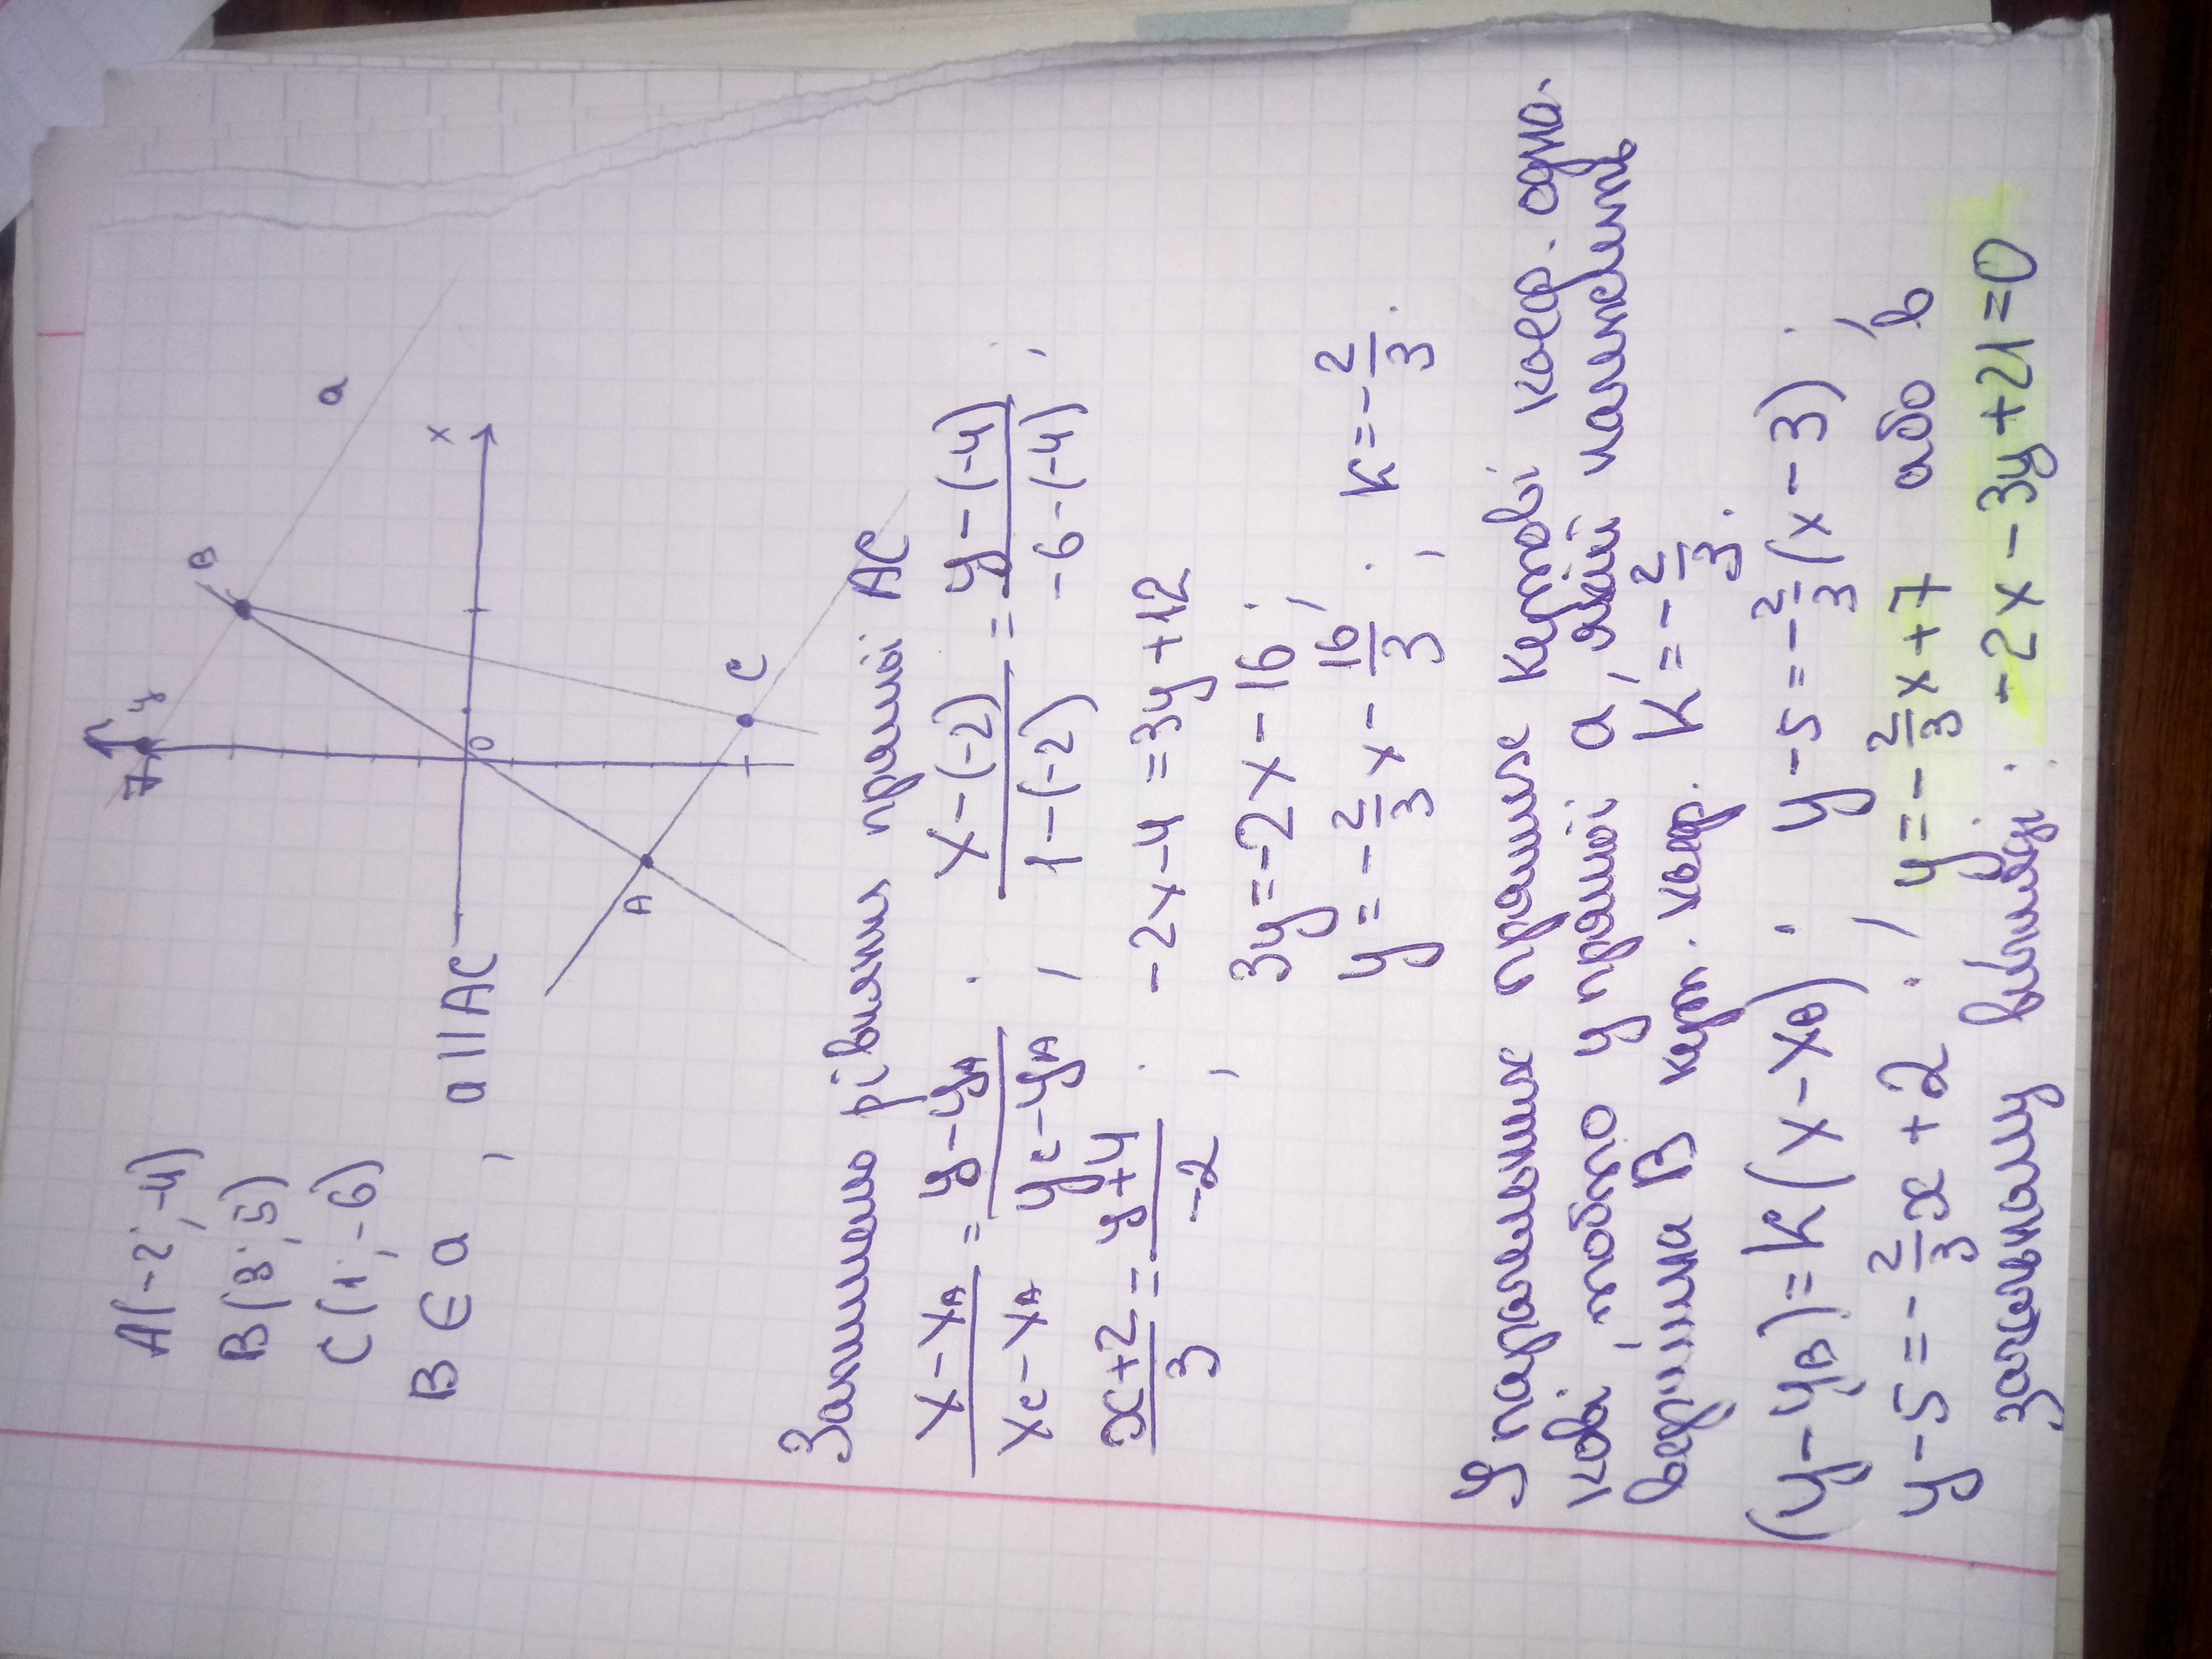 A(-2; -4)
B(3; 5)
C(1; -6)
B ∈ a, a || AC
7 y
B
a
x
0
A
C
Запишемо рівняння прямої AC
(x - xA)/(xC - xA) = (y - yA)/(yC - yA); (x - (-2))/(1 - (-2)) = (y - (-4))/(-6 - (-4));
(x + 2)/3 = (y + 4)/-2; -2x - 4 = 3y + 12
3y = -2x - 16;
y = -2/3 x - 16/3; K = -2/3.
У паралельних прямих кутові коеф. одна-
кові, тобто у прямої a, якій належить
вершина B кут. коеф. K = -2/3.
(y - yB) = K(x - xB); y - 5 = -2/3(x - 3);
y - 5 = -2/3 x + 2; y = -2/3 x + 7 або в
загальному вигляді: -2x - 3y + 21 = 0